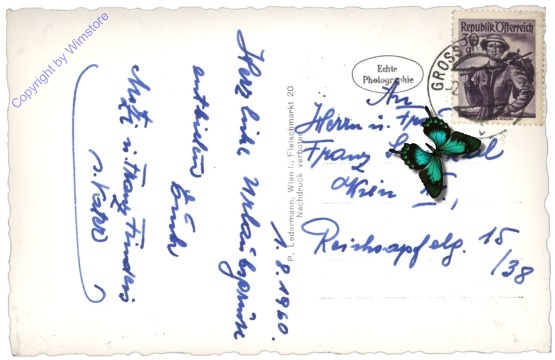 Copyright by Wimstore
Herzliche Urlaubsgrüsse
entbieten
Euch
1.8.1960.
P. Ledermann, Wien I., Fleischmarkt 20
Nachdruck verboten
Echte
Photographie
Republik Österreich
GROSS
An
Herrn u.
Franz
Wien
Reichsapfelg. 15
/38